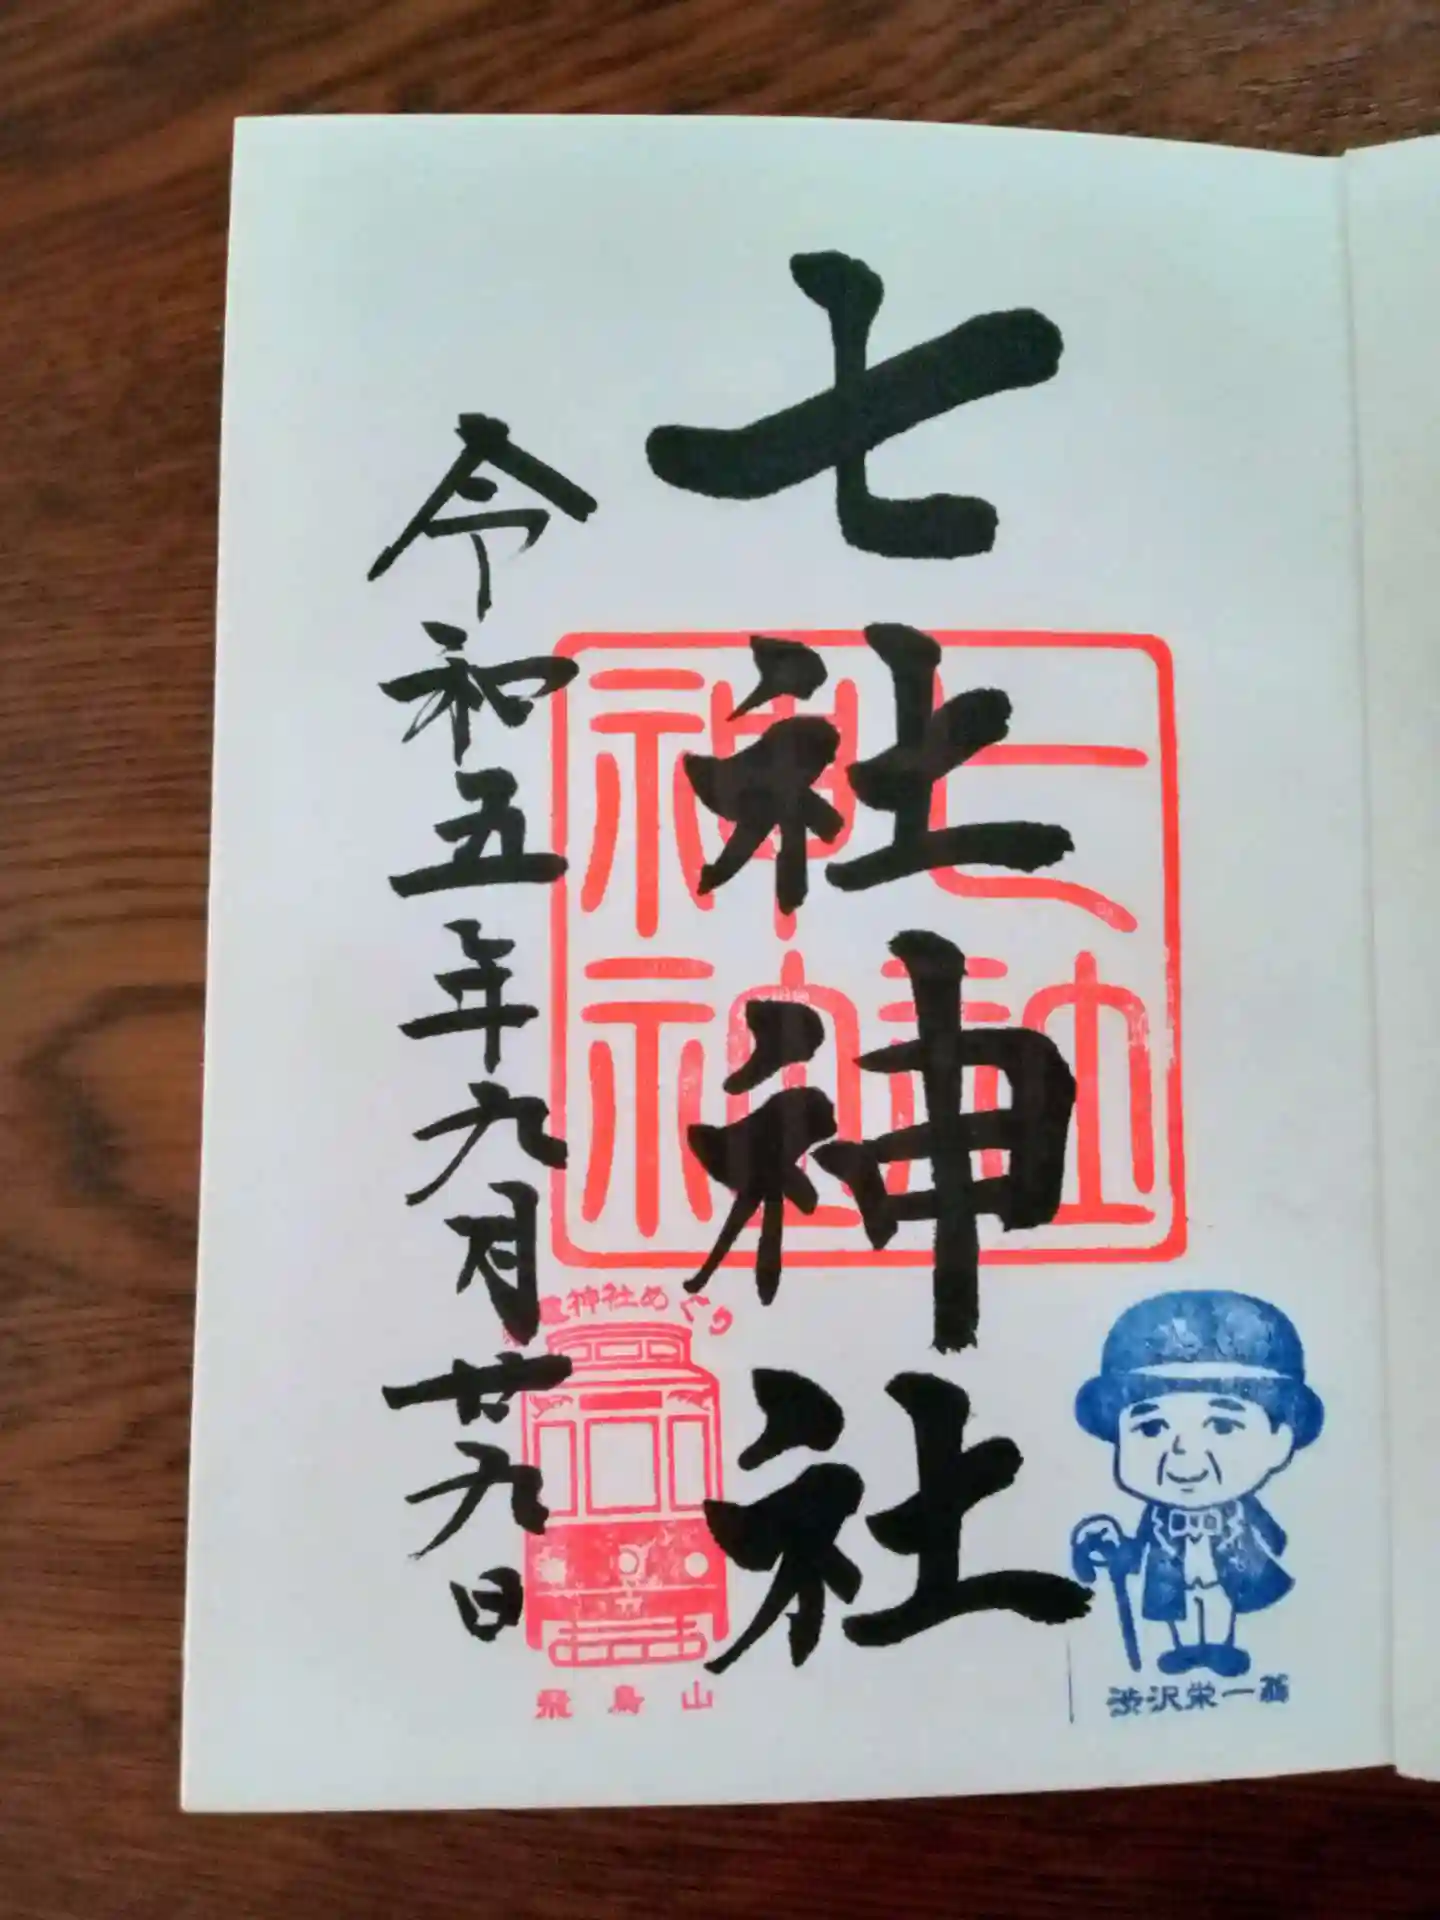 七社神社
令和五年九月廿九日
七社
神社
神社めぐり
飛鳥山
渋沢栄一翁